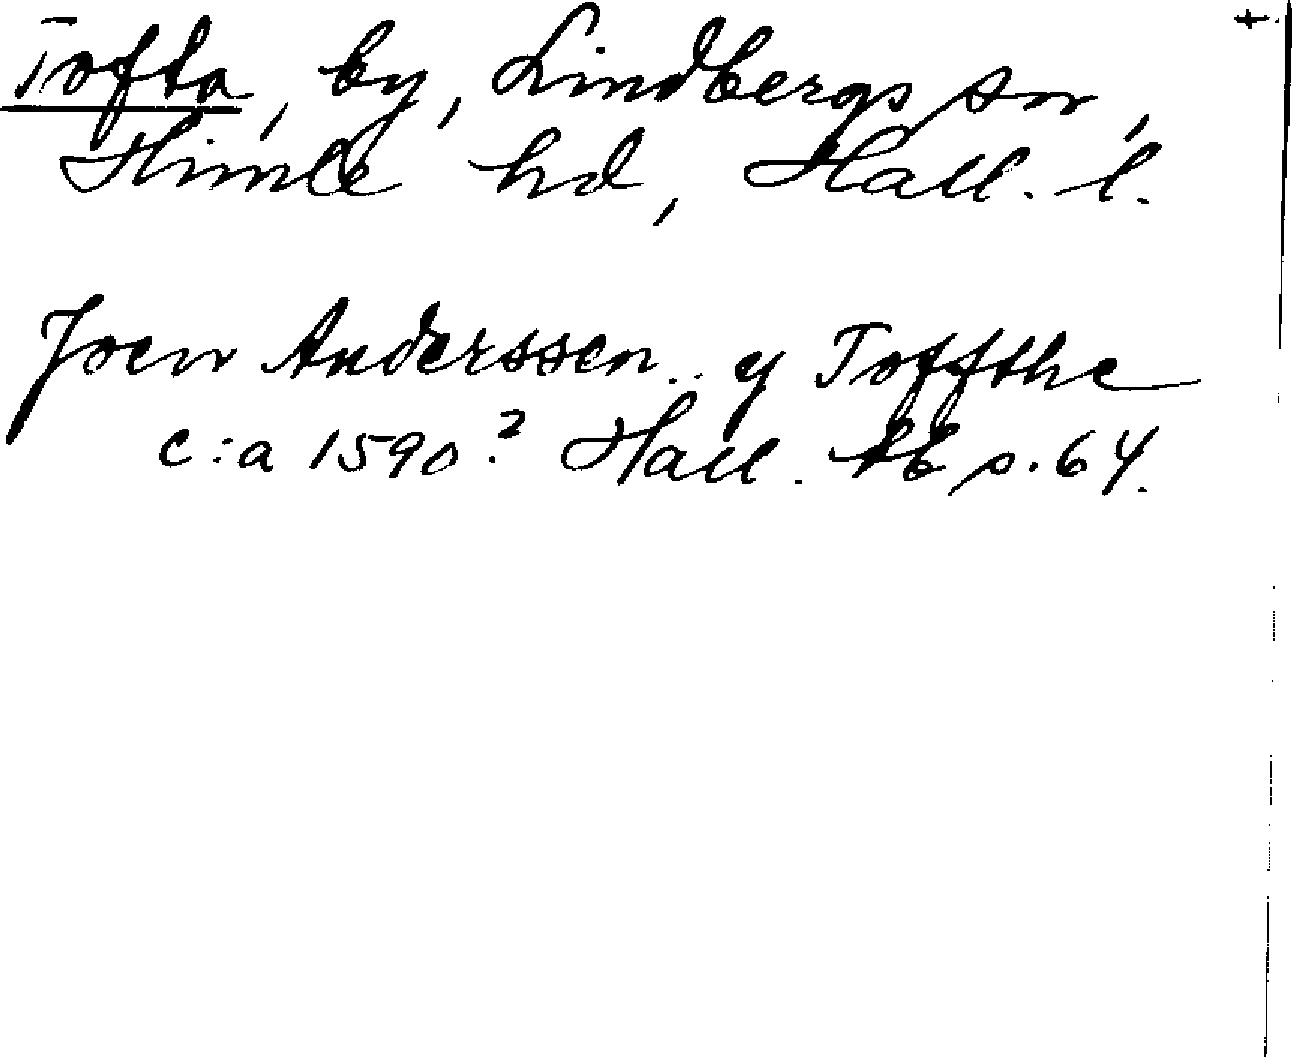 t.
Tofta, by, Lindbergs sn,
Himle hd, Hall. l.
Joen Anderssen .. y Toffthe
c:a 1590? Hall. Äb p. 64.